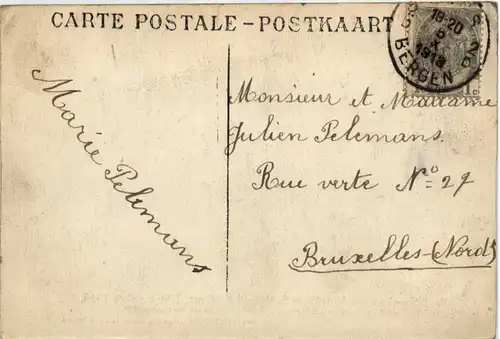 CARTE POSTALE - POSTKAART
19-20
5
X
1918
BERGEN
1c
Monsieur et Madame
Julien Pelemans.
Rue verte No 27
Bruxelles (Nord).
Marie Pelemans